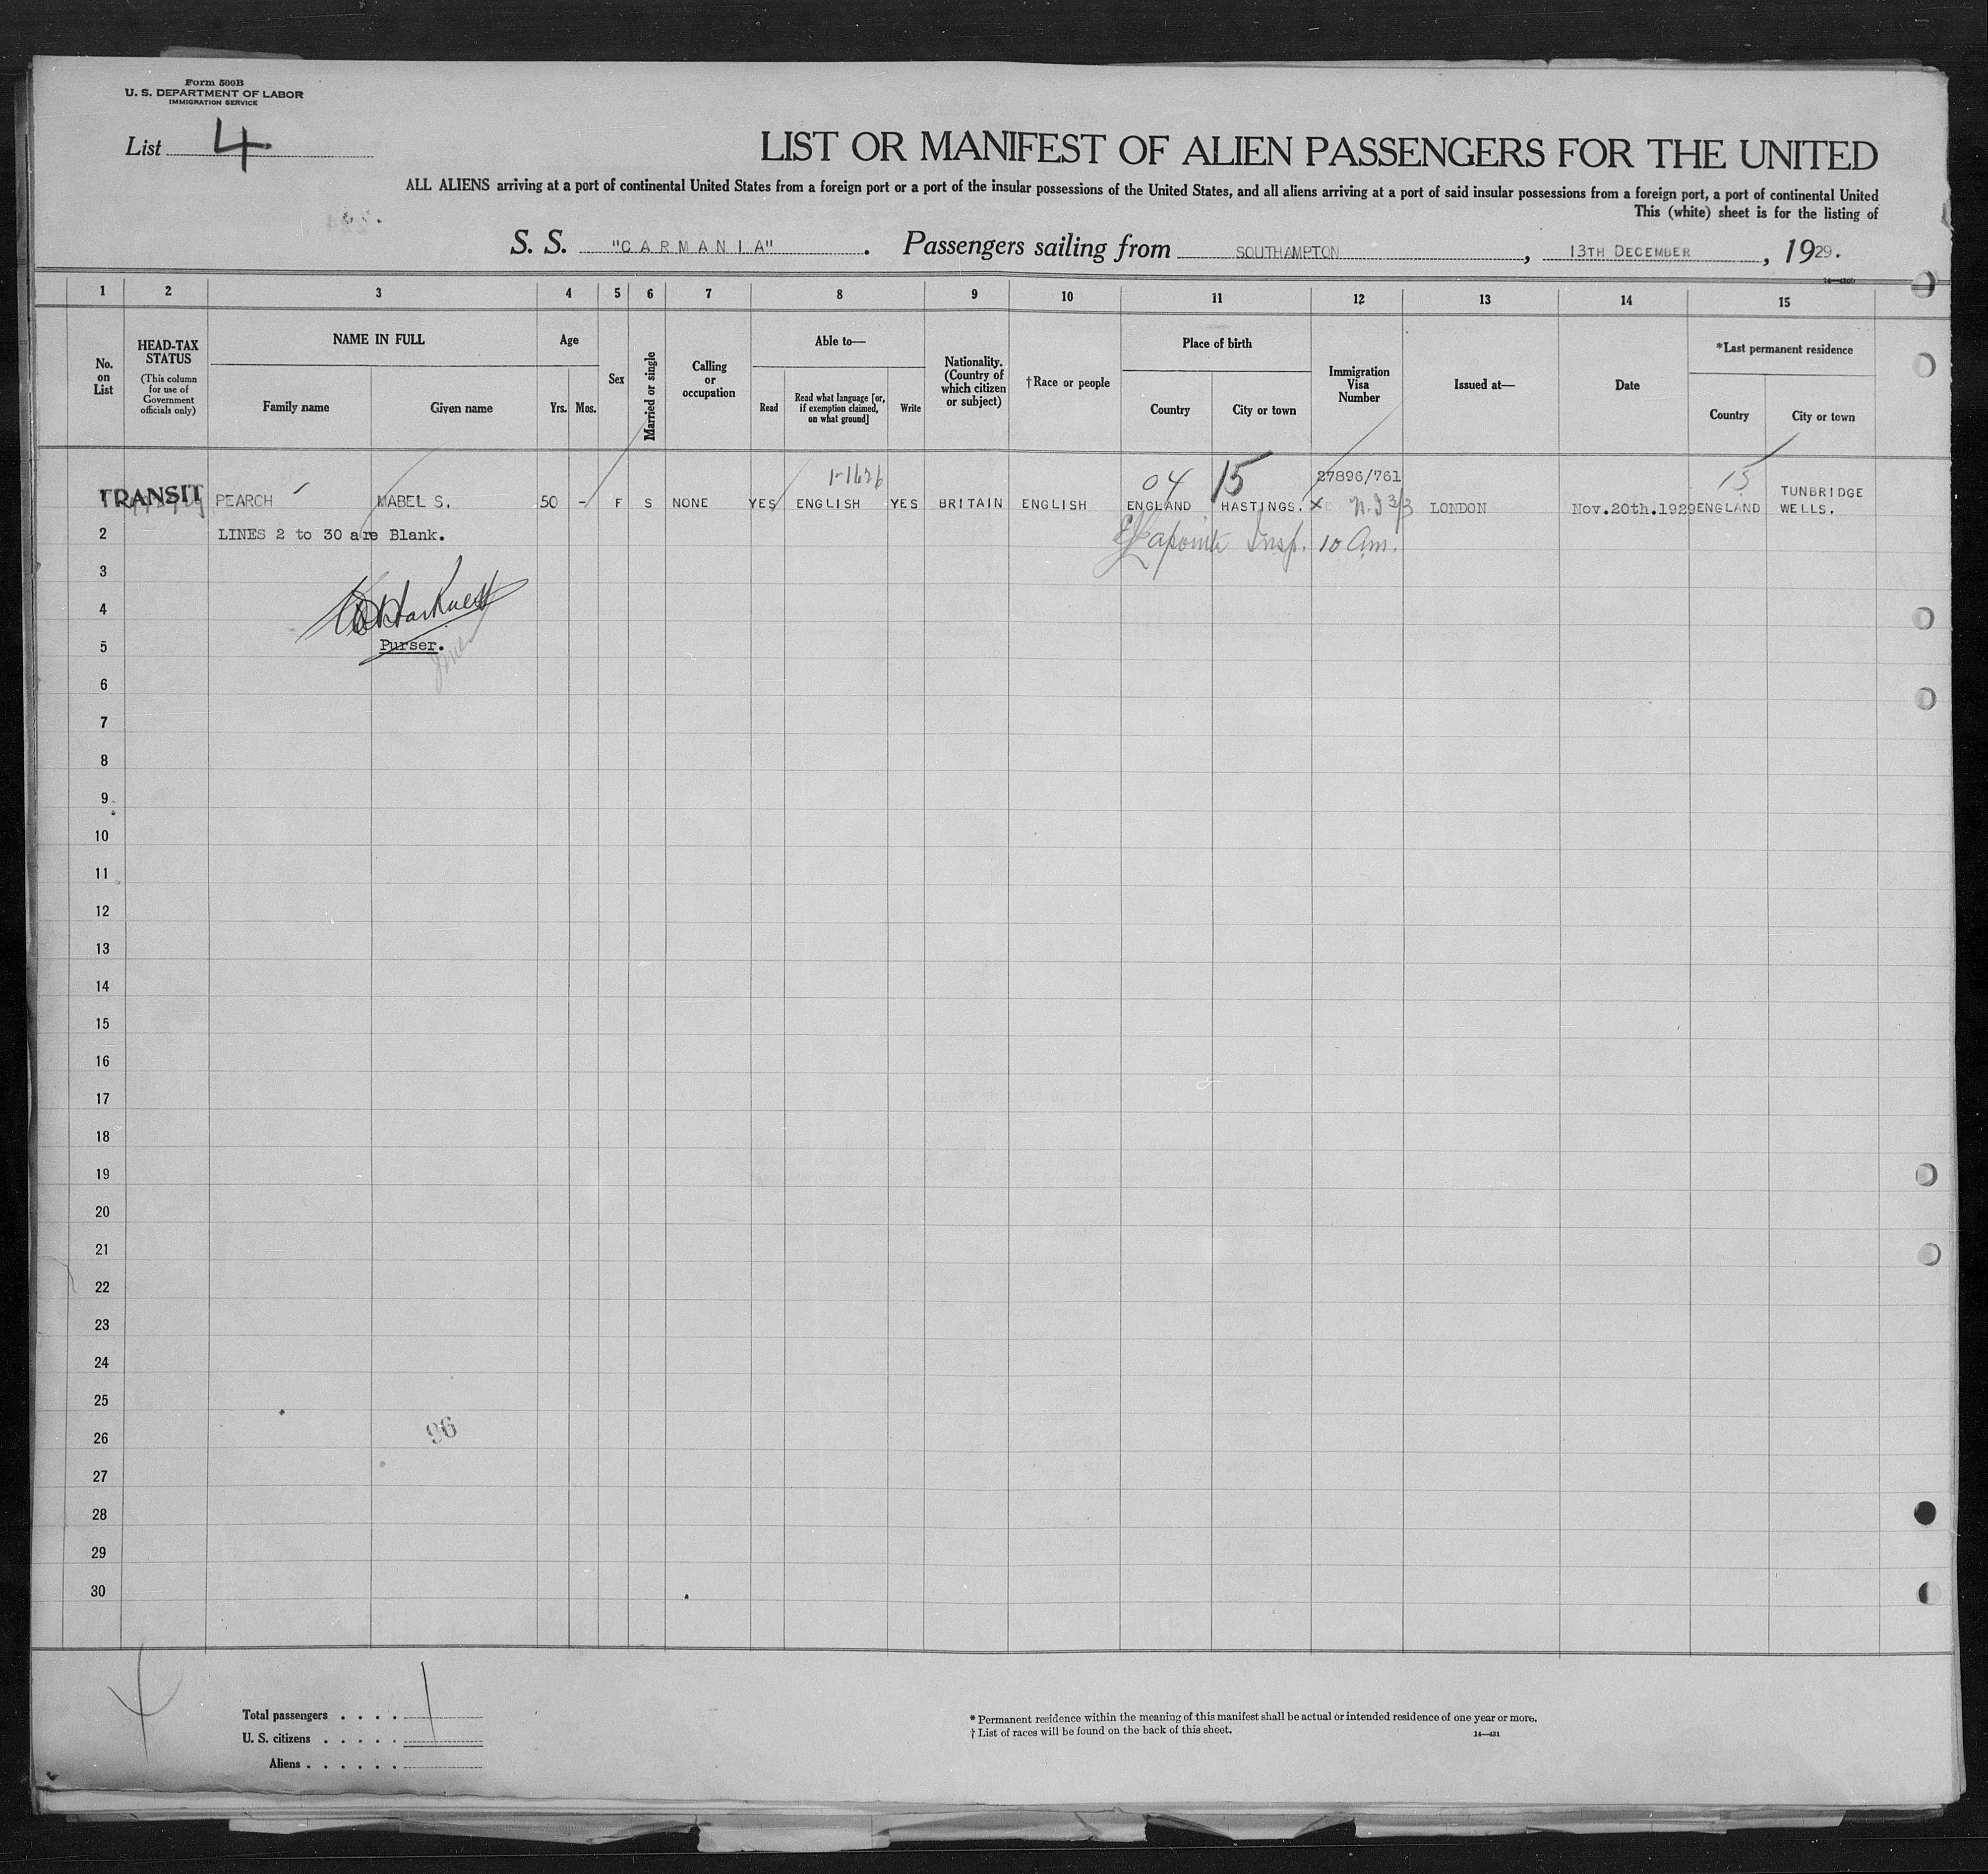 Form 500B
U. S. DEPARTMENT OF LABOR
IMMIGRATION SERVICE
List 4
LIST OR MANIFEST OF ALIEN PASSENGERS FOR THE UNITED
ALL ALIENS arriving at a port of continental United States from a foreign port or a port of the insular possessions of the United States, and all aliens arriving at a port of said insular possessions from a foreign port, a port of continental United
This (white) sheet is for the listing of
S. S. "CARMANIA". Passengers sailing from SOUTHAMPTON, 13TH DECEMBER, 1929.
1 2 3 4 5 6 7 8 9 10 11 12 13 14 15
No. on List
HEAD-TAX STATUS
(This column for use of Government officials only)
NAME IN FULL
Family name
Given name
Age
Yrs. Mos.
Sex
Married or single
Calling or occupation
Able to—
Read
Read what language [or, if exemption claimed, on what ground]
Write
Nationality. (Country of which citizen or subject)
†Race or people
Place of birth
Country
City or town
Immigration Visa Number
Issued at—
Date
*Last permanent residence
Country
City or town
04 15 27896/761 15
1 TRANSIT PEARCH MABEL S. 50 - F S NONE YES ENGLISH YES BRITAIN ENGLISH ENGLAND HASTINGS. LONDON Nov.20th.1929 ENGLAND TUNBRIDGE WELLS.
2 LINES 2 to 30 are Blank.
Lapointe Insp. 10 Am.
3
4
Harkness
5 Purser.
6
7
8
9
10
11
12
13
14
15
16
17
18
19
20
21
22
23
24
25
26
96
27
28
29
30
Total passengers . . . . 1
U. S. citizens . . . . .
Aliens . . . . . .
* Permanent residence within the meaning of this manifest shall be actual or intended residence of one year or more.
† List of races will be found on the back of this sheet.
14—431